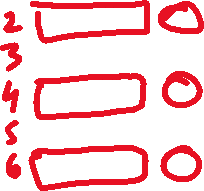 2
3
4
5
6